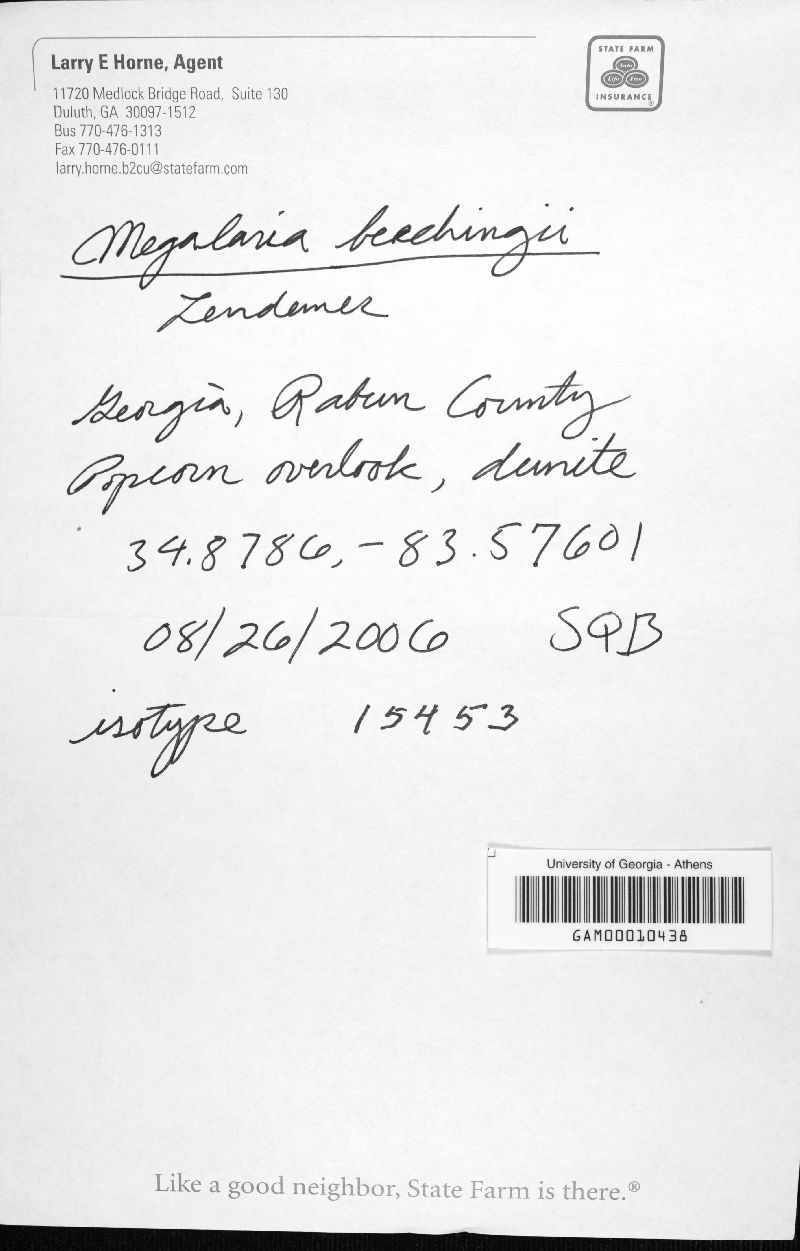 Larry E Horne, Agent
11720 Medlock Bridge Road, Suite 130
Duluth, GA 30097-1512
Bus 770-476-1313
Fax 770-476-0111
larry.horne.b2cu@statefarm.com
STATE FARM
Auto
Life Fire
INSURANCE
®
Megalaria beechingii
Lendemer
Georgia, Rabun County
Popcorn overlook, dunite
34.8786, -83.57601
08/26/2006 SQB
isotype 15453
University of Georgia - Athens
GAM00010438
Like a good neighbor, State Farm is there.®